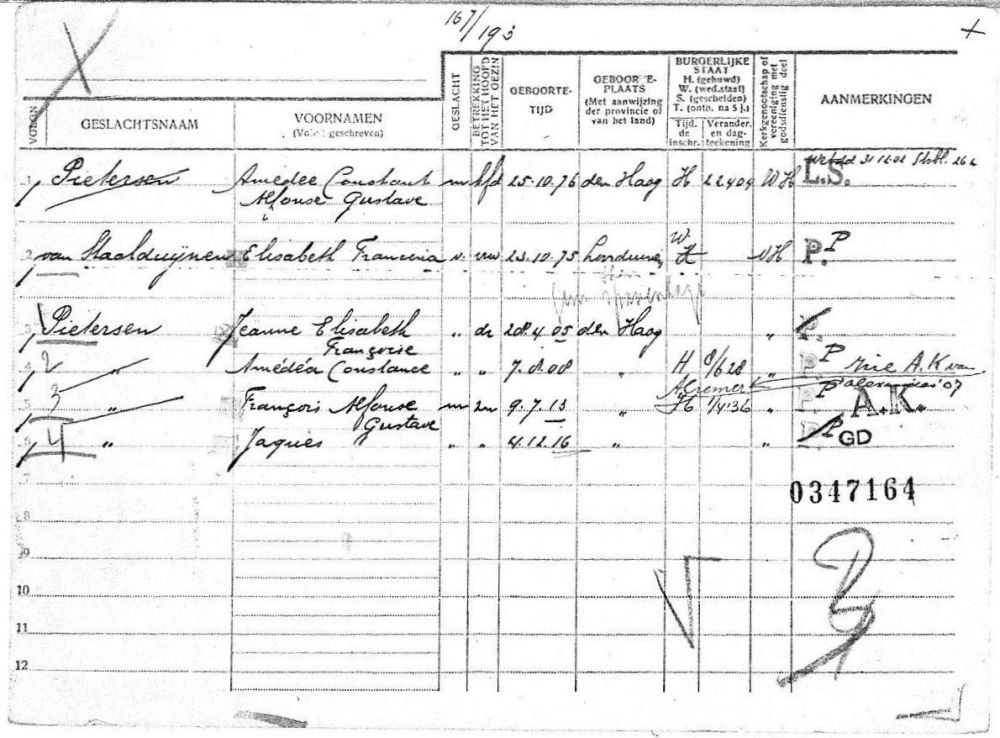 167/193
+
VOLGN
GESLACHTSNAAM
VOORNAMEN
(Voluit geschreven)
GESLACHT
BETREKKING TOT HET HOOFD VAN HET GEZIN
GEBOORTE-TIJD
GEBOORTE-PLAATS
(Met aanwijzing der provincie of van het land)
BURGERLIJKE STAAT
H. (gehuwd)
W. (wed.staat)
S. (gescheiden)
T. (ontb. na 5 j.)
Tijd. de inschr.
Verander. en dag-teekening
Kerkgenootschap of vereeniging met godsdienstig doel
AANMERKINGEN
31 12.02 Stbl. 262
1 Pietersen Amédée Constant m hfd 25.10.76 den Haag H 22404 WH L.S.
Alfonse Gustave
W.
2 van Staalduijnen Elisabeth Francina v. vrw 23.10.75 H NH P. P
3 Pietersen Jeanne Elisabeth " dr 28.4.05 den Haag " P.
Françoise
4 2 " Amédéa Constance " " 7.8.08 " H 8/6 28 " P P A.K van
A Cremer
5 3 " François Alfonse m zn 9.7.13 " H 1/4 36 " P P A.K.
Gustave
6 4 " Jaques " " 4.12.16 " " P P GD
7
0347164
8
9
10
11
12